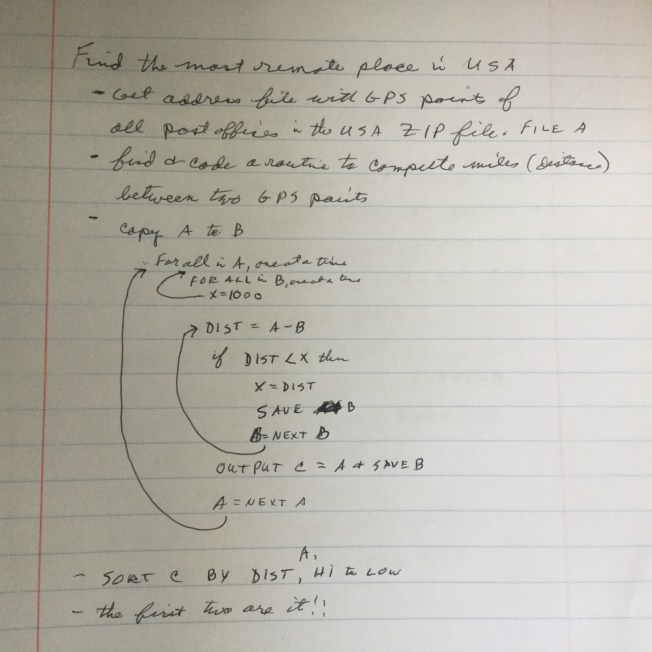 Find the most remote place in USA
- Get address file with GPS points of
all post offices in the USA ZIP file. FILE A
- find & code a routine to compute miles (distance)
between two GPS points
-
Copy A to B
- For all in A, one at a time
FOR ALL in B, one at a time
X=1000
DIST = A-B
if DIST < X then
X = DIST
SAVE B
B= NEXT B
OUTPUT C = A & SAVE B
A = NEXT A
A,
- SORT C BY DIST, Hi to LOW
- the first two are it!!